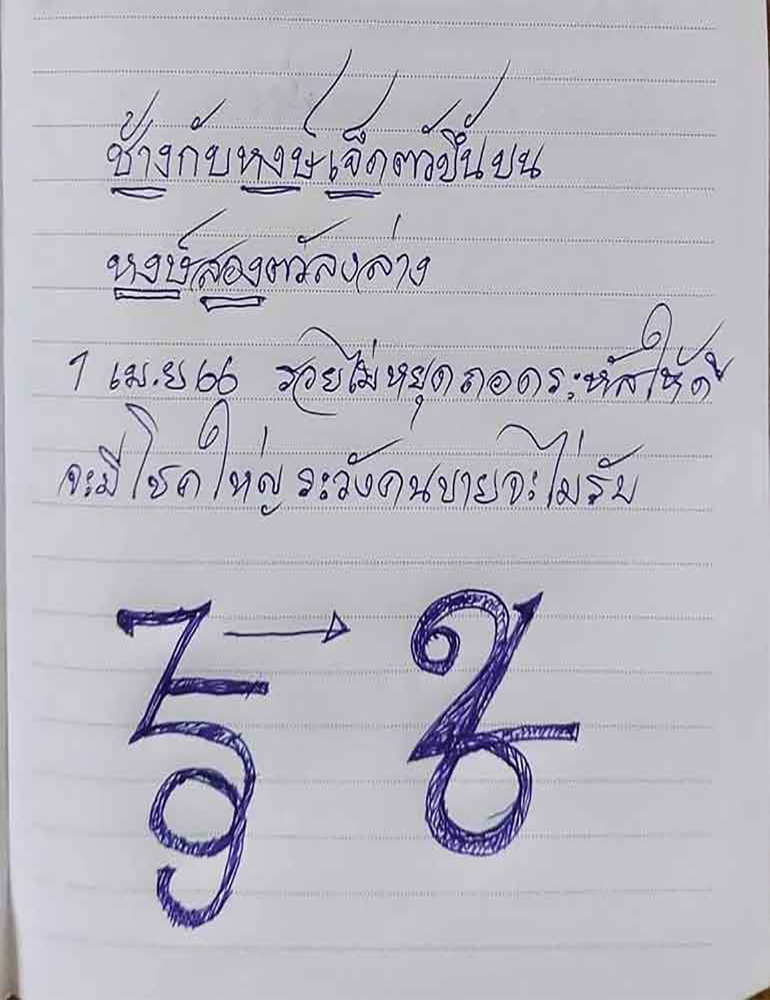 ช้างกับหงษ์เจ็ดตัวขึ้นบน
หงษ์สองตัวลงล่าง
1 เม.ย 66 รวยไม่หยุด ถอดระหัสให้ดี
จะมีโชคใหญ่ ระวังคนขายจะไม่รับ